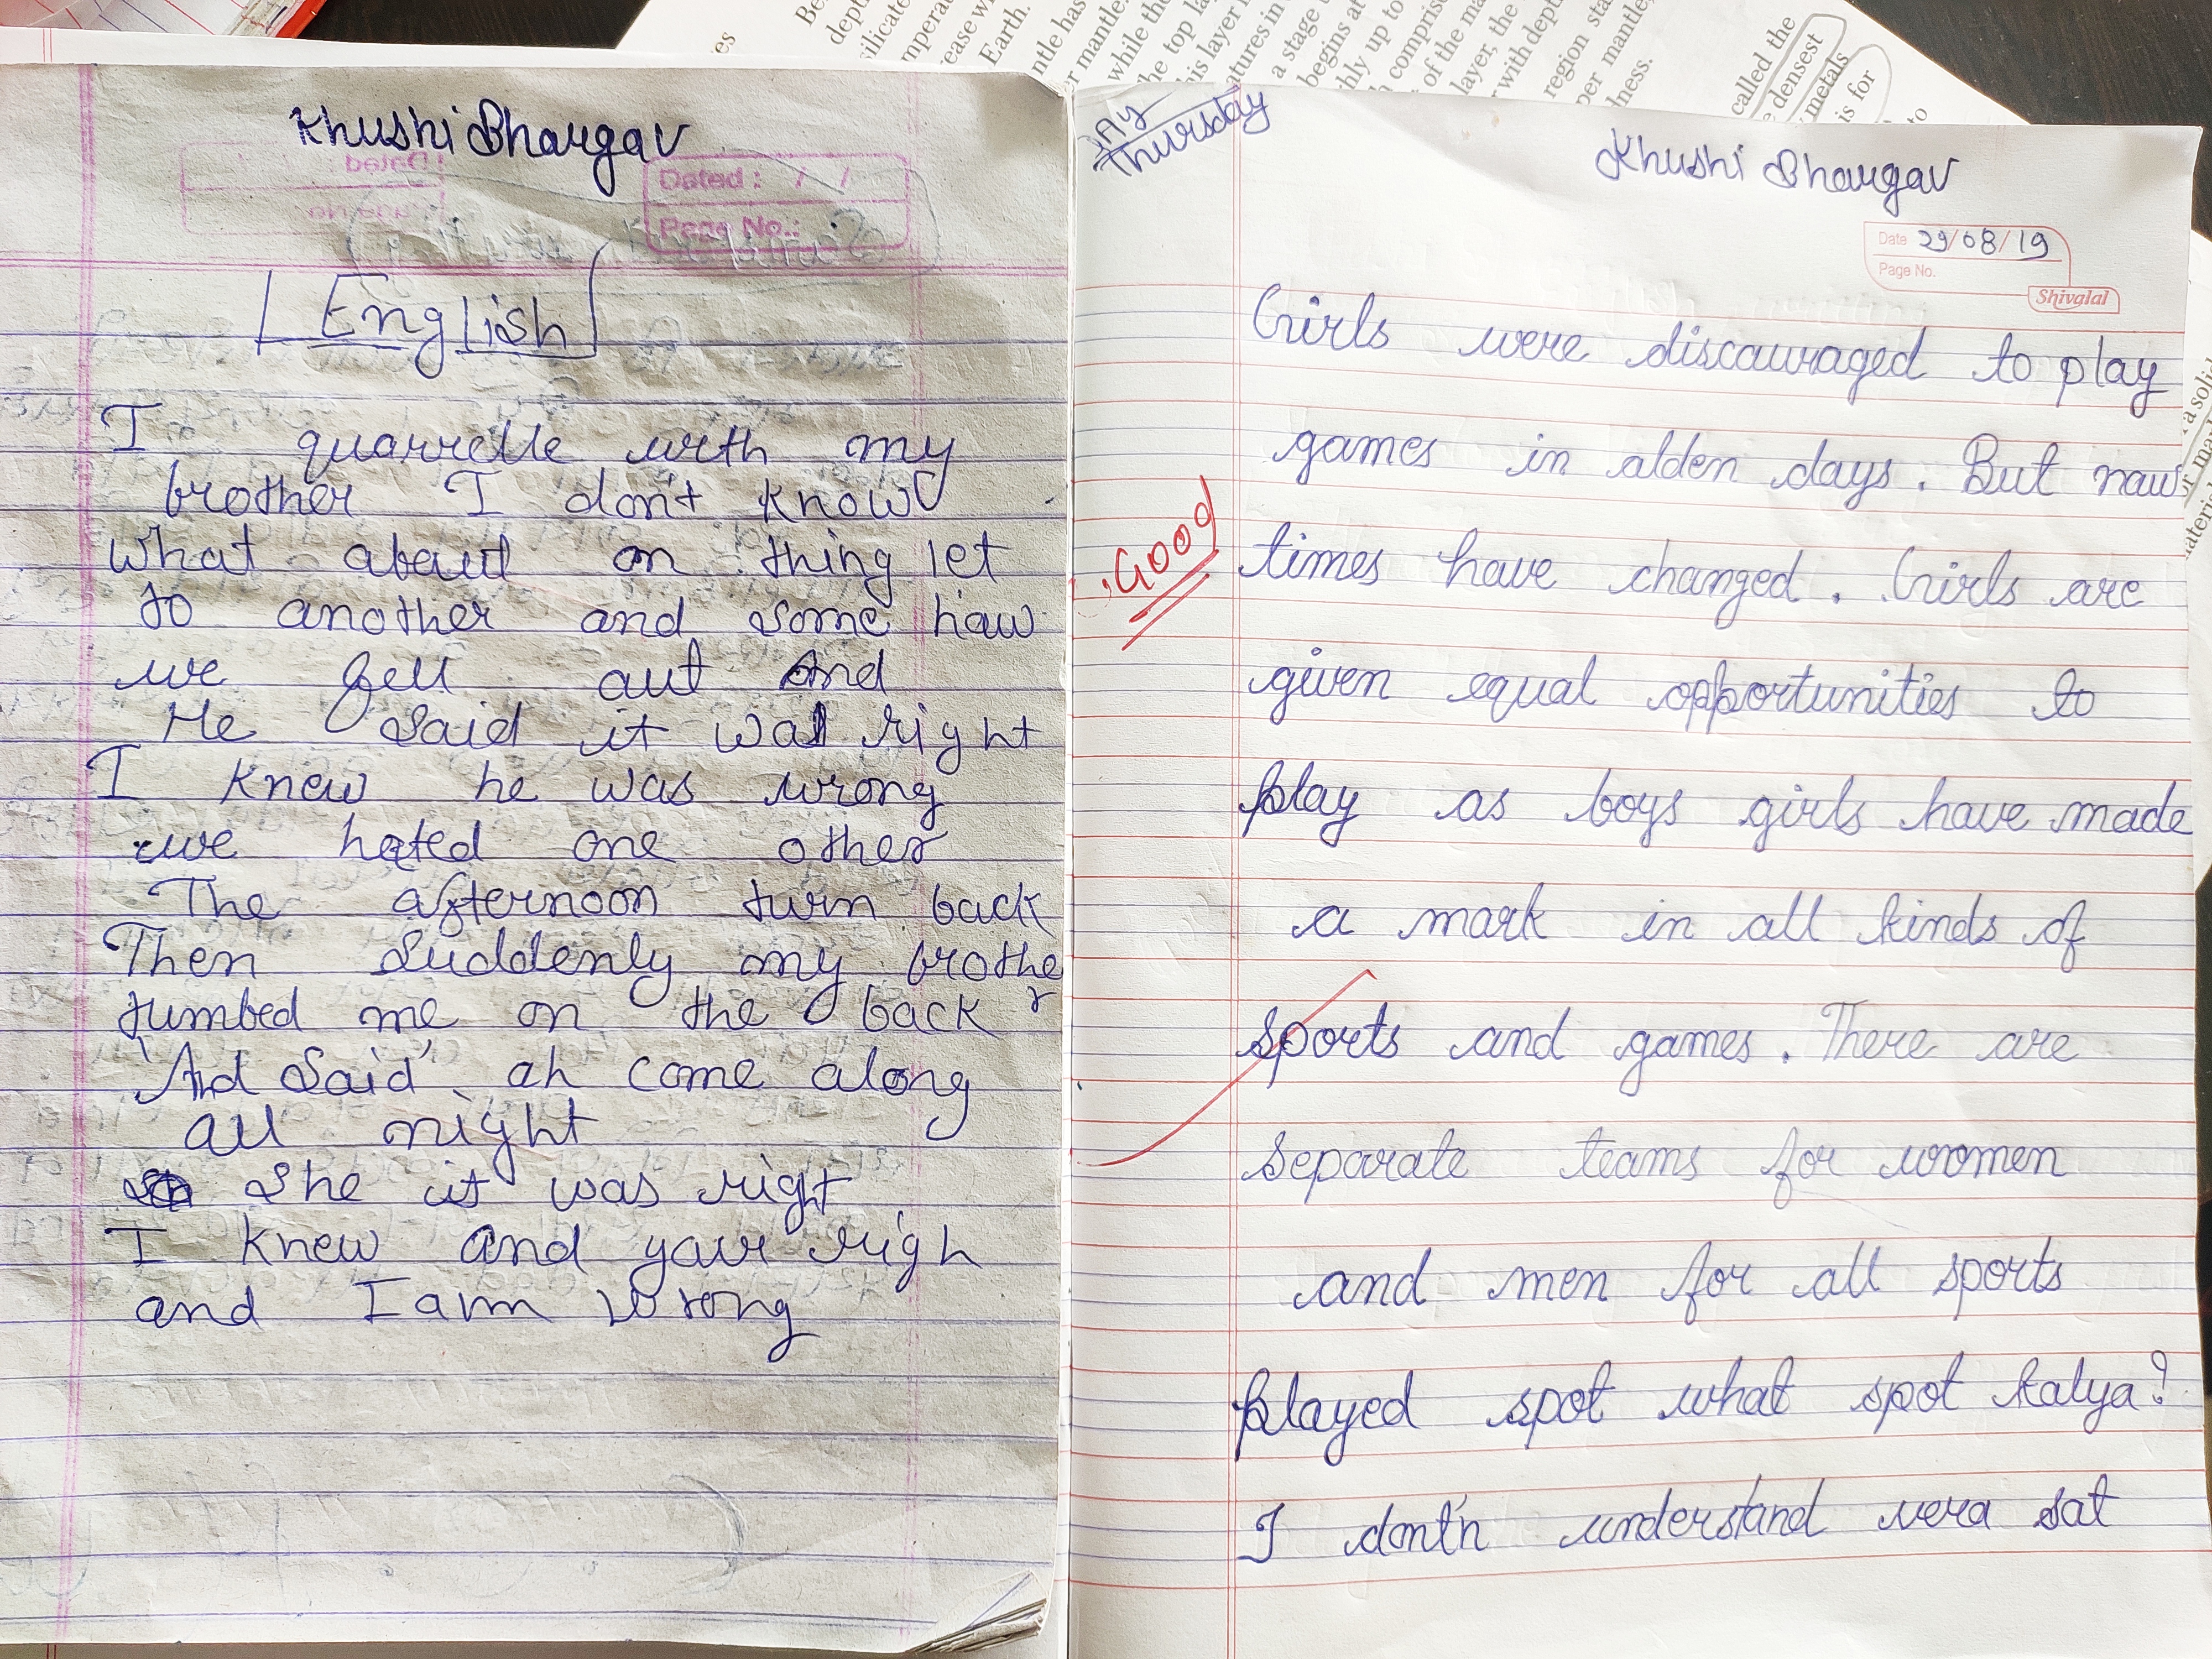 Khushi Bhargav
Dated : / /
Page No.:
English
I quarrelle with my
brother I don't know
what abaut on thing let
to another and some haw
we fell aut And
He said it was right
I knew he was wrong
we hated one other
The afternoon turn back
Then suddenly my brother
tumbed me on the back
'And Said' ah come along
all night
She it was right
I knew and yaur righ
and I am wrong
Thursday
Khushi Bhargav
Date 29/08/19
Page No.
Shivalal
Girls were discauraged to play
games in alden days. But naw
Good
times have changed. Girls are
given equal opportunities to
play as boys girls have made
a mark in all kinds of
sports and games. There are
separate teams for women
and men for all sports
played spot what spot kalya?
I dont'n understand vera sat
called the
densest
metals
is for
to
Earth.
while the
the top la
a stage
begins at
comprise
of the ma
layer, the
with dept
region sta
per mantle,